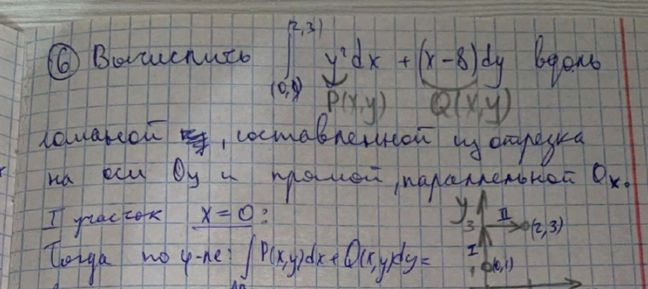 (2,3)
⑥ Вычислить ∫ y²dx + (x-8)dy вдоль
(0,1)
P(x,y) Q(x,y)
ломаной, составленной из отрезка
на оси Oy и прямой, параллельной Ox.
I участок x=0:
y II
3 (2,3)
Тогда по ф-ле: ∫P(x,y)dx+Q(x,y)dy=
I (0,1)